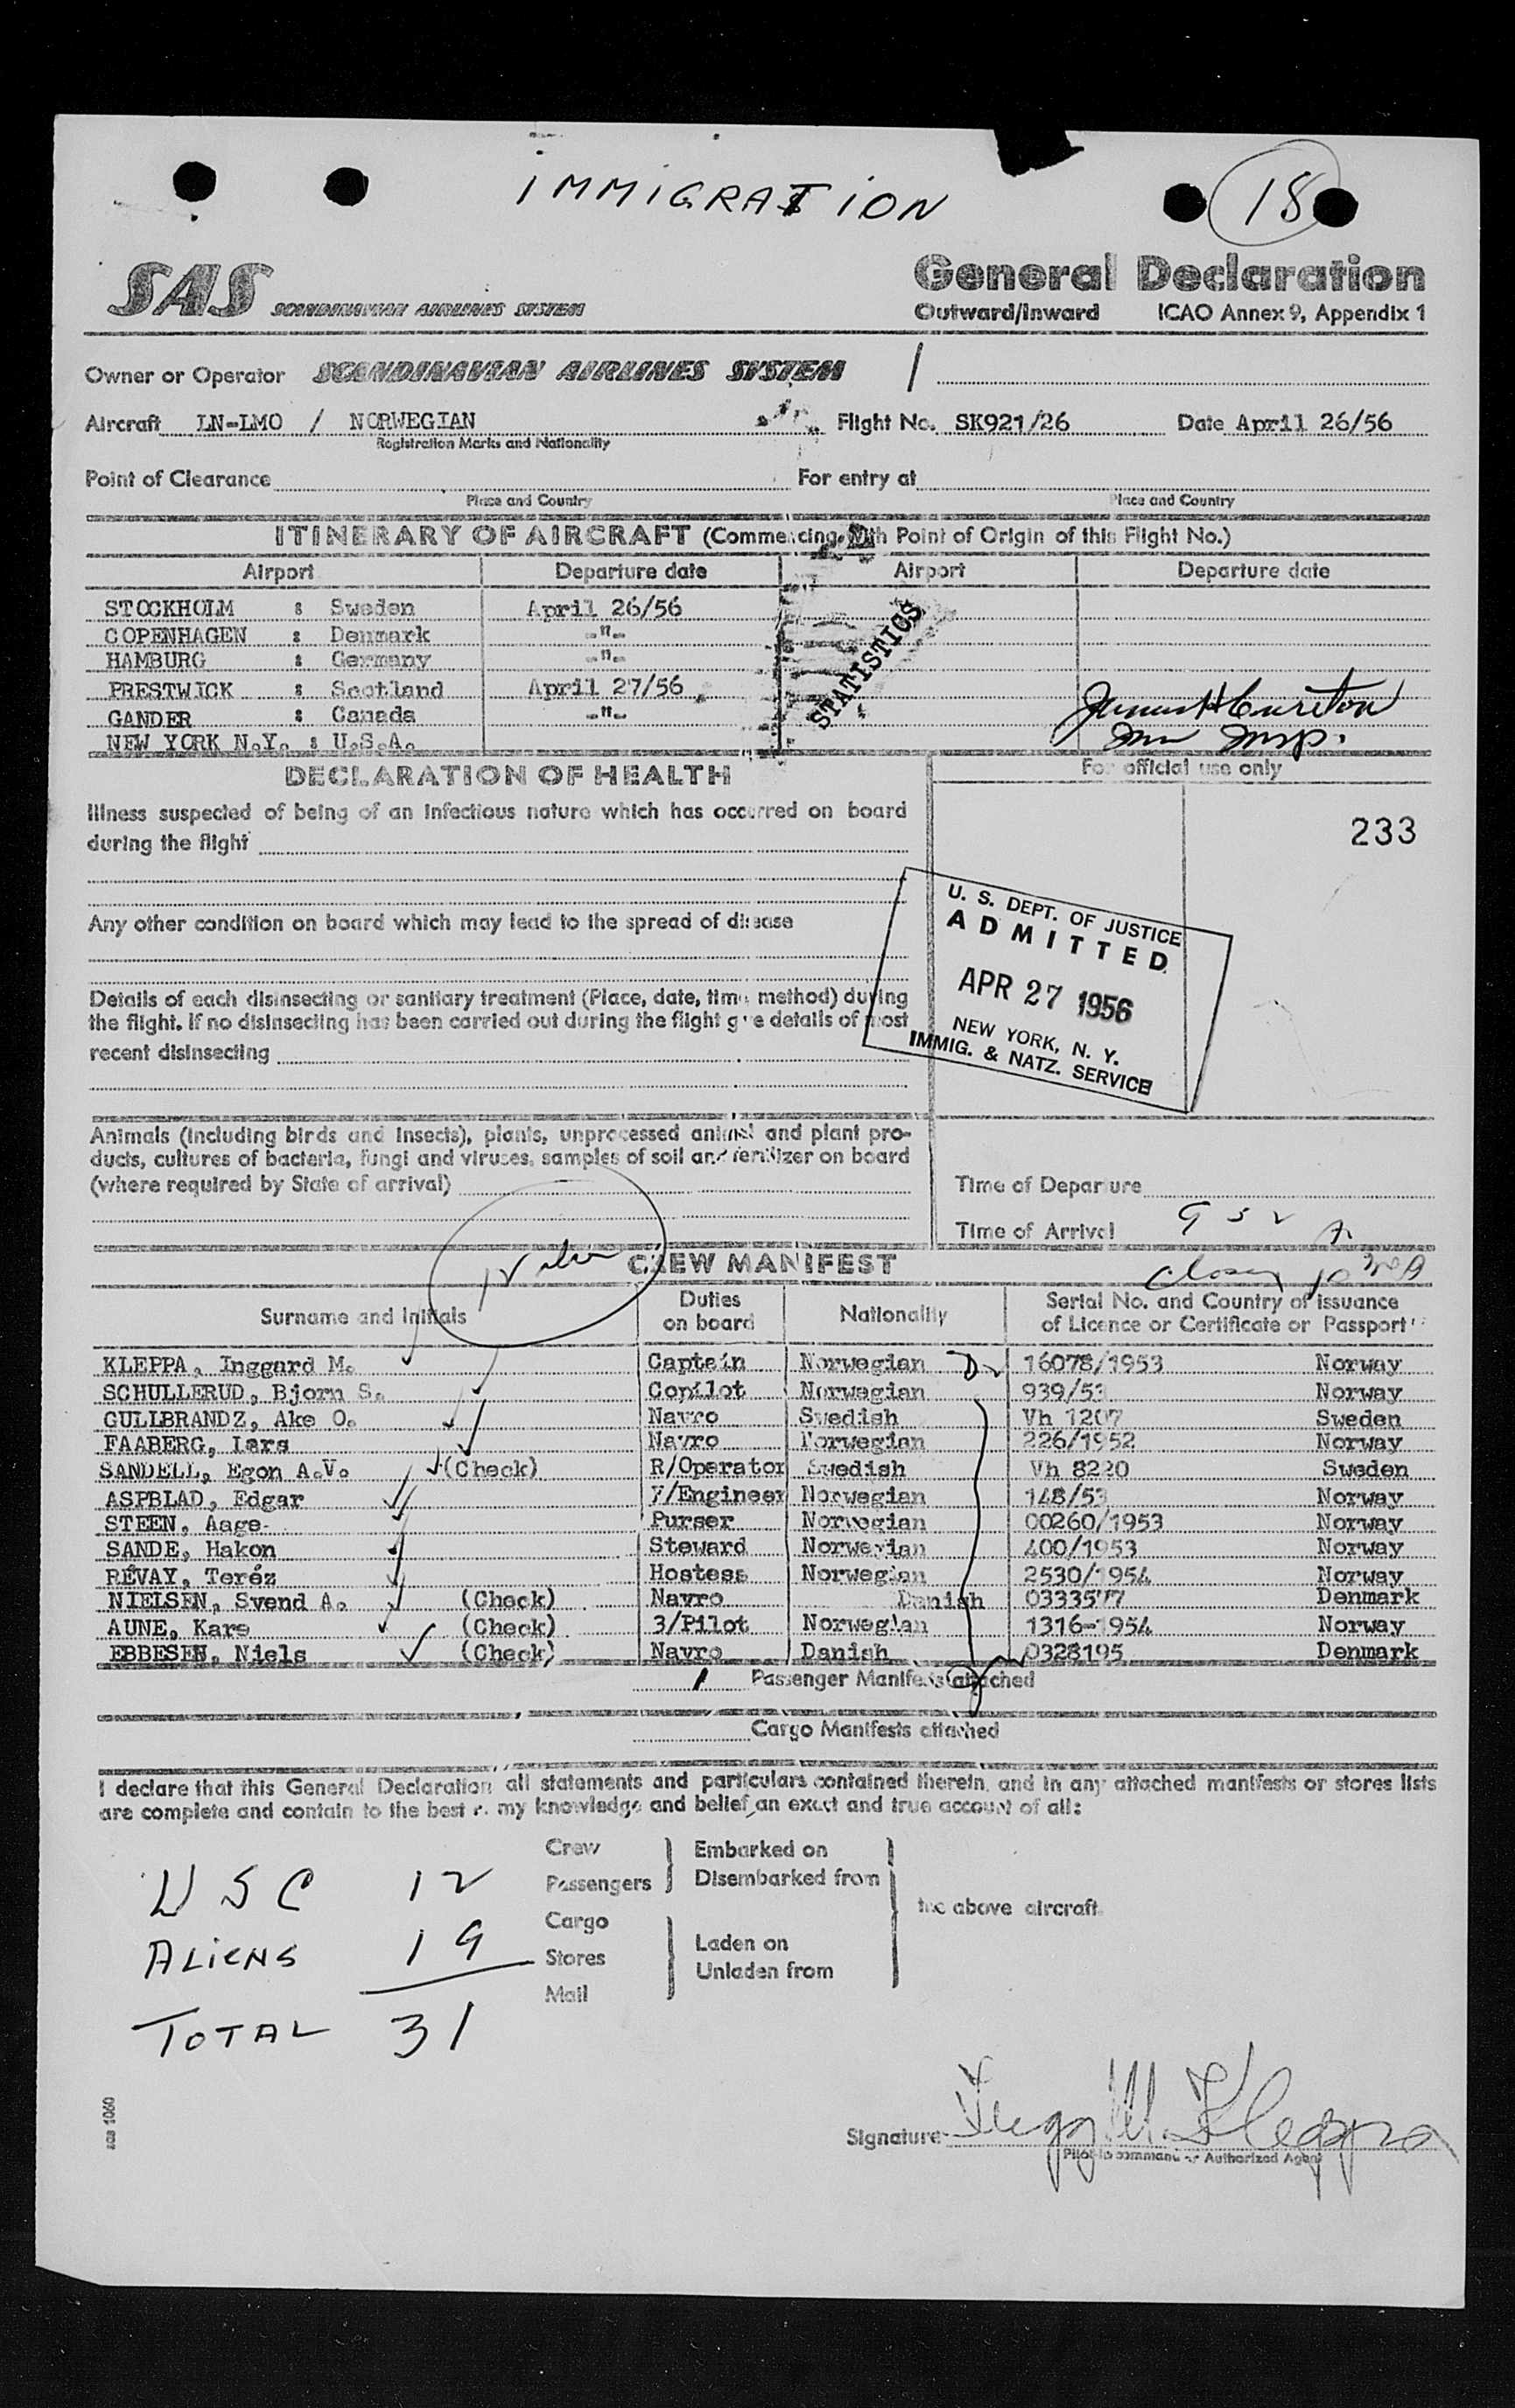 IMMIGRATION
18
SAS SCANDINAVIAN AIRLINES SYSTEM
General Declaration
Outward/Inward ICAO Annex 9, Appendix 1
Owner or Operator SCANDINAVIAN AIRLINES SYSTEM
Aircraft LN-LMO / NORWEGIAN Flight No. SK921/26 Date April 26/56
Registration Marks and Nationality
Point of Clearance For entry at
Place and Country Place and Country
ITINERARY OF AIRCRAFT (Commencing with Point of Origin of this Flight No.)
Airport Departure date Airport Departure date
STOCKHOLM : Sweden April 26/56
COPENHAGEN : Denmark -"-
HAMBURG : Germany -"-
PRESTWICK : Scotland April 27/56
GANDER : Canada -"-
NEW YORK N.Y. : U.S.A.
STATISTICS
Imm Insp.
DECLARATION OF HEALTH
For official use only
Illness suspected of being of an infectious nature which has occurred on board
during the flight
233
Any other condition on board which may lead to the spread of disease
U. S. DEPT. OF JUSTICE
ADMITTED
APR 27 1956
NEW YORK, N. Y.
IMMIG. & NATZ. SERVICE
Details of each disinsecting or sanitary treatment (Place, date, time, method) during
the flight. If no disinsecting has been carried out during the flight give details of most
recent disinsecting
Animals (including birds and insects), plants, unprocessed animal and plant pro-
ducts, cultures of bacteria, fungi and viruses, samples of soil and fertilizer on board
(where required by State of arrival)
Time of Departure
Time of Arrival 952 A
CREW MANIFEST
Surname and Initials Duties on board Nationality Serial No. and Country of issuance of Licence or Certificate or Passport
KLEPPA, Inggard M. Captain Norwegian 16078/1953 Norway
SCHULLERUD, Bjorn S. Copilot Norwegian 939/53 Norway
GULLBRANDZ, Ake O. Navro Swedish Vh 1207 Sweden
FAABERG, Lars Navro Norwegian 226/1952 Norway
SANDELL, Egon A.V. (Check) R/Operator Swedish Vh 8220 Sweden
ASPBLAD, Edgar F/Engineer Norwegian 148/53 Norway
STEEN, Aage- Purser Norwegian 00260/1953 Norway
SANDE, Hakon Steward Norwegian 400/1953 Norway
RÉVAY, Teréz Hostess Norwegian 2530/1954 Norway
NIELSEN, Svend A. (Check) Navro Danish 0333577 Denmark
AUNE, Kare (Check) 3/Pilot Norwegian 1316-1954 Norway
EBBESEN, Niels (Check) Navro Danish 0328195 Denmark
1 Passenger Manifests attached
Cargo Manifests attached
I declare that this General Declaration all statements and particulars contained therein, and in any attached manifests or stores lists
are complete and contain to the best of my knowledge and belief, an exact and true account of all:
Crew
Passengers
Embarked on
Disembarked from
Cargo
Stores
Mail
Laden on
Unladen from
the above aircraft.
USC 12
ALIENS 19
TOTAL 31
sas 1060
Signature Ingg M. Kleppa
Pilot-in command or Authorized Agent